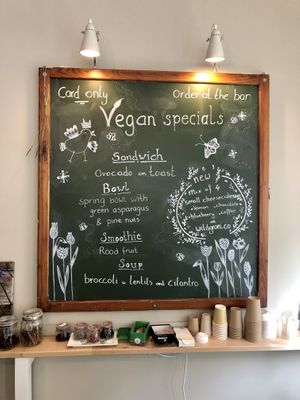 Card only
Order at the bar
Vegan specials
Sandwich
Avocado on toast
Bowl
spring bowl with
green asparagus
& pine nuts
Smoothie
Rood fruit
Soup
broccoli & lentils and cilantro
new
mix of 4
small cheesecakes
lemon · chocolate
blueberry · coffee
wildgreen.co